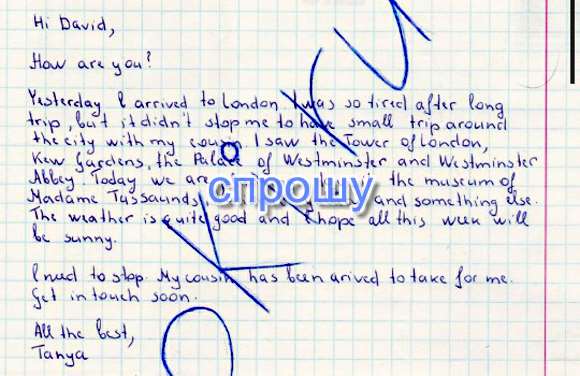 Hi David,
How are you?
Yesterday I arrived to London. I was so tired after long
trip, but it didn't stop me to have small trip around
the city with my cousin. I saw the Tower of London,
Kew Gardens, the Palace of Westminster and Westminster
Abbey. Today we are the museum of
Madame Tussaunds, and something else.
The weather is quite good and I hope all this week will
be sunny.
I need to stop. My cousin has been arived to take for me.
Get in touch soon.
All the best,
Tanya
спрошу